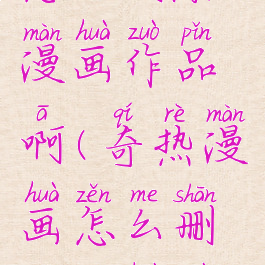 màn huà zuò pǐn
漫画作品
ā qí rè màn
啊(奇热漫
huà zěn me shān
画怎么删